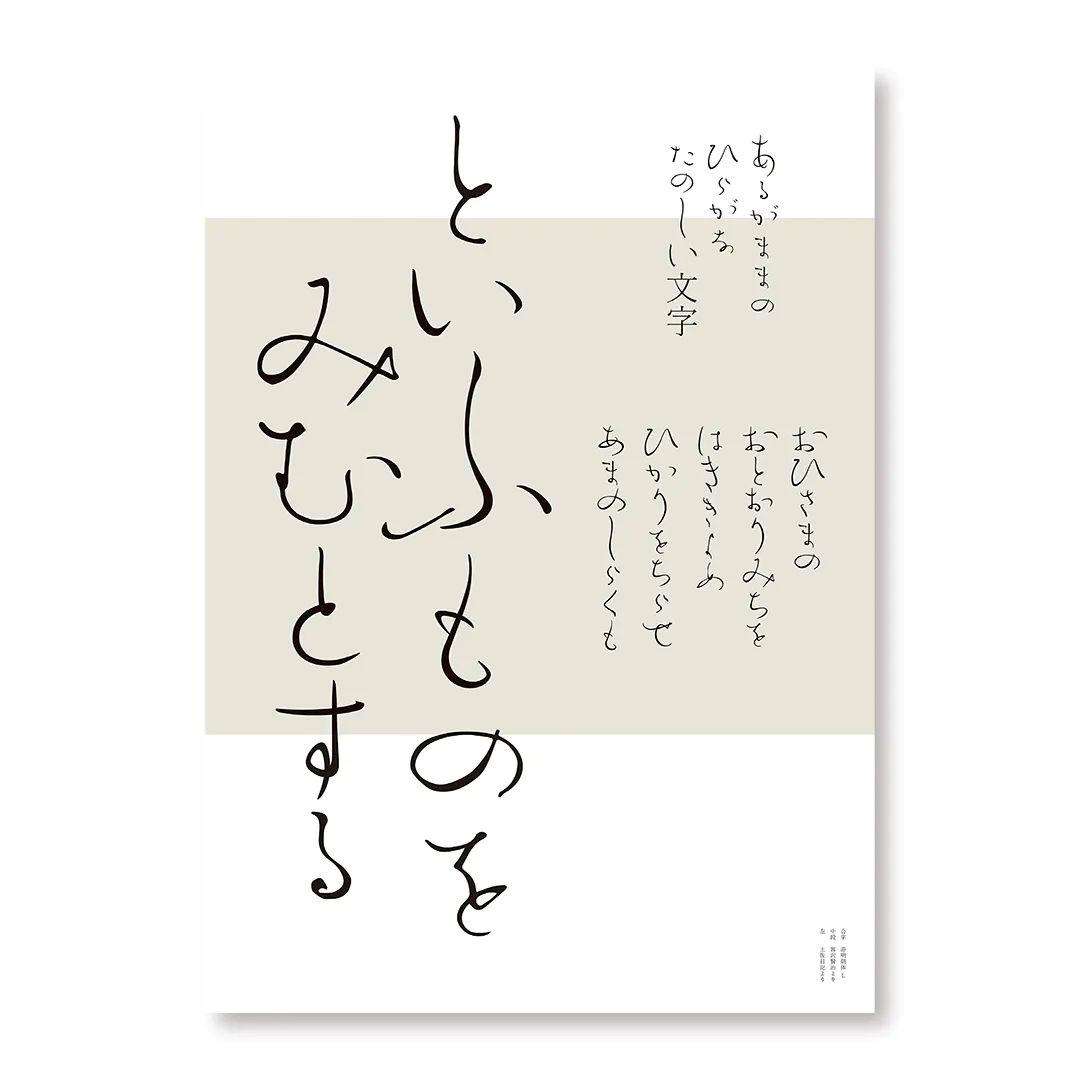 あるがままの
ひらがな
たのしい文字
おひさまの
おとおりみちを
はききよめ
ひかりをちらせ
あまのしらくも
といふものを
みむとする
合字 游明朝体L
中段 宮沢賢治より
左 土佐日記より